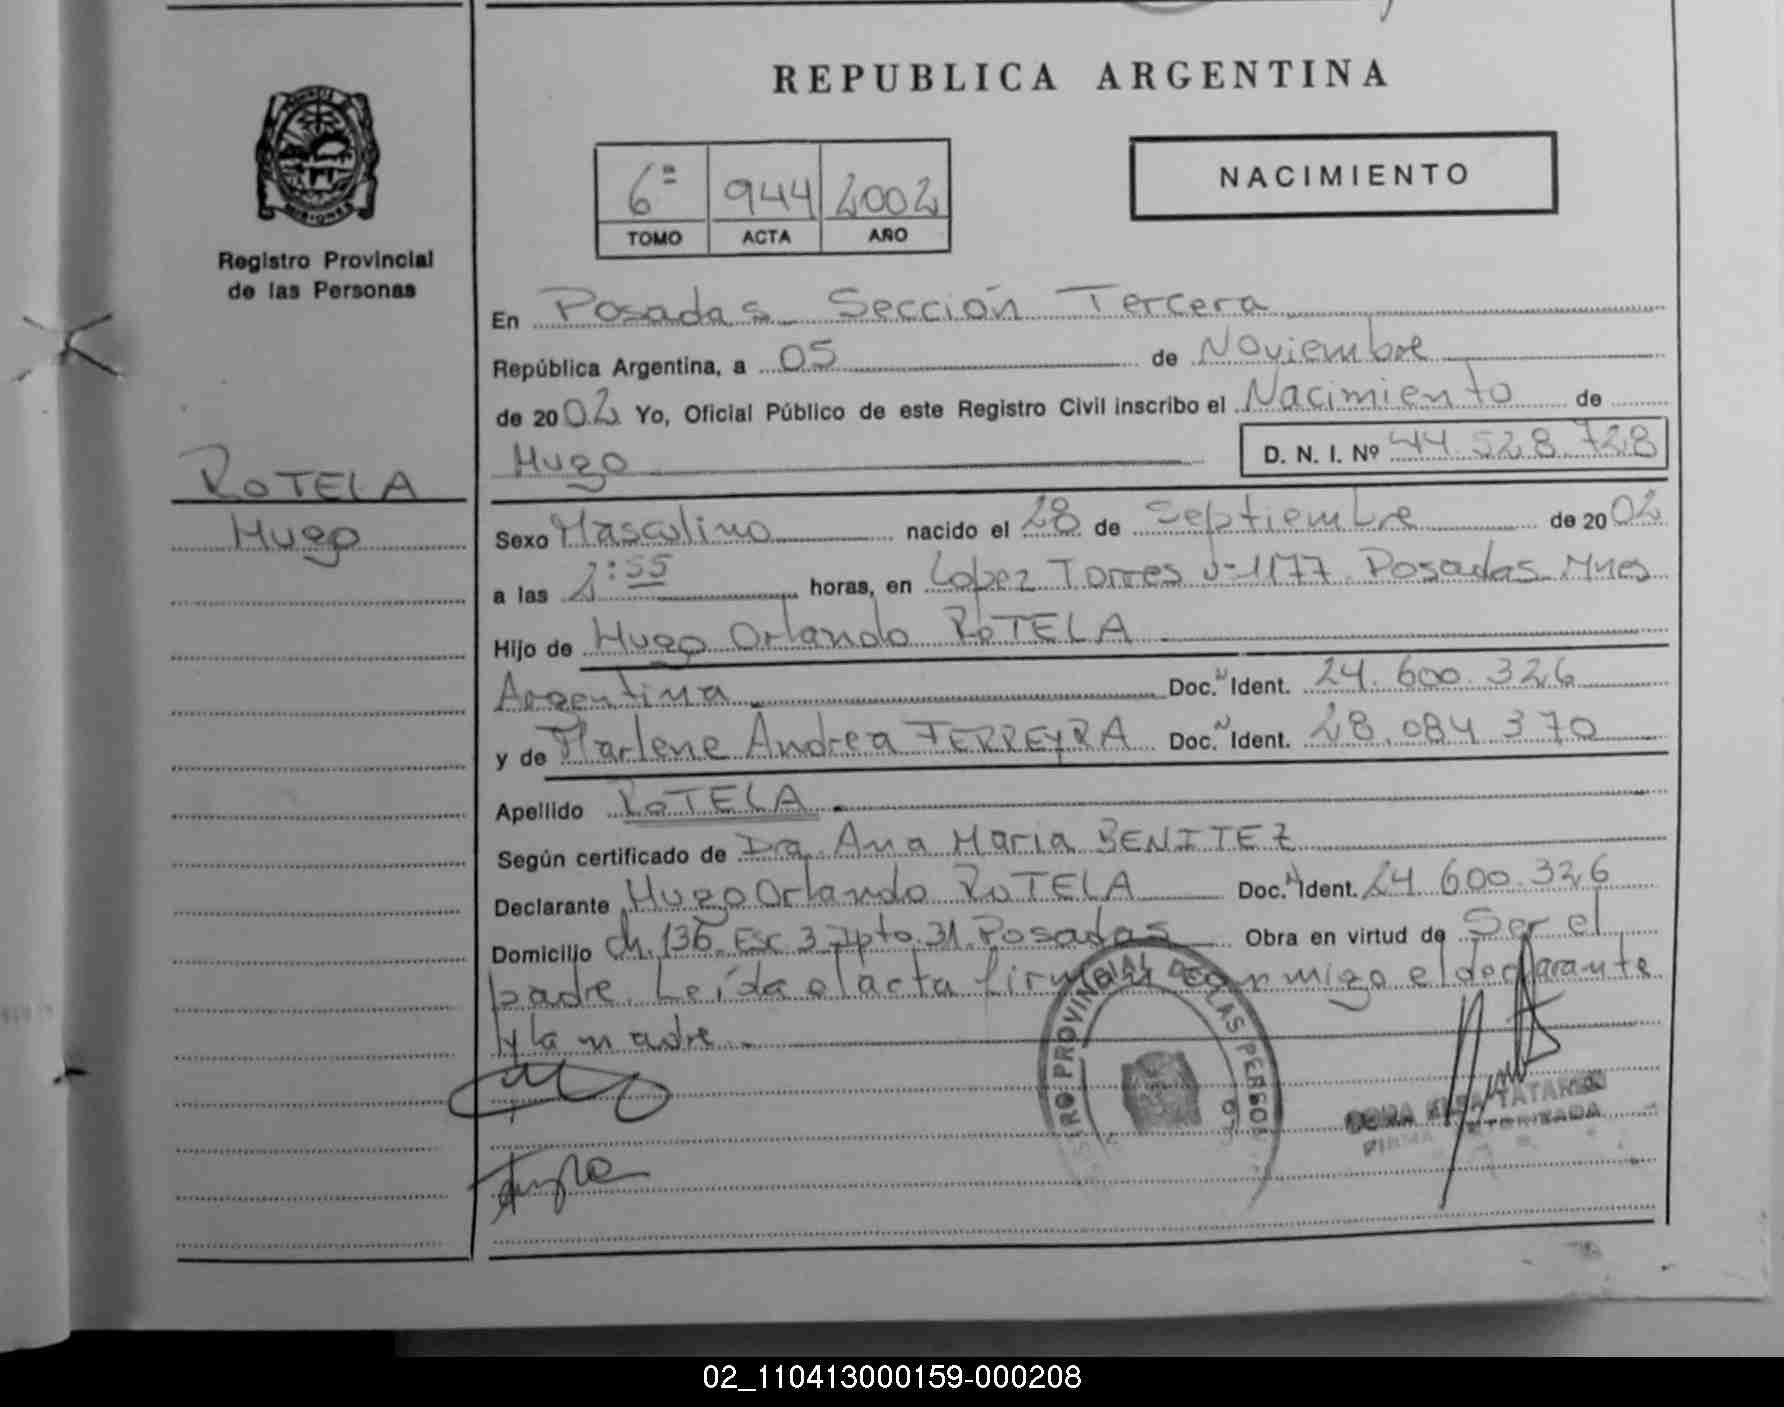 REPUBLICA ARGENTINA
NACIMIENTO
6º 944 2002
TOMO ACTA AÑO
MISIONES
Registro Provincial
de las Personas
En Posadas Sección Tercera
República Argentina, a 05 de Noviembre
de 2002 Yo, Oficial Público de este Registro Civil inscribo el Nacimiento de
Hugo D. N. I. Nº 44.528.728
ROTELA
Hugo
Sexo Masculino nacido el 28 de Septiembre de 2002
a las 2:55 horas, en Lopez Torres 1177 Posadas Mnes
Hijo de Hugo Orlando ROTELA
Argentina Doc. Ident. 24.600.326
y de Marlene Andrea FERREYRA Doc. Ident. 28.084.370
Apellido ROTELA
Según certificado de Dra. Ana Maria BENITEZ
Declarante Hugo Orlando ROTELA Doc. Ident. 24.600.326
Domicilio Ch. 136 Esc 3 Dpto. 31 Posadas Obra en virtud de Ser el
padre. Leída el acta firman conmigo el declarante
y la madre
PROVINCIAL DE LAS PERSO
FIRMA AUTORIZADA
02_110413000159-000208